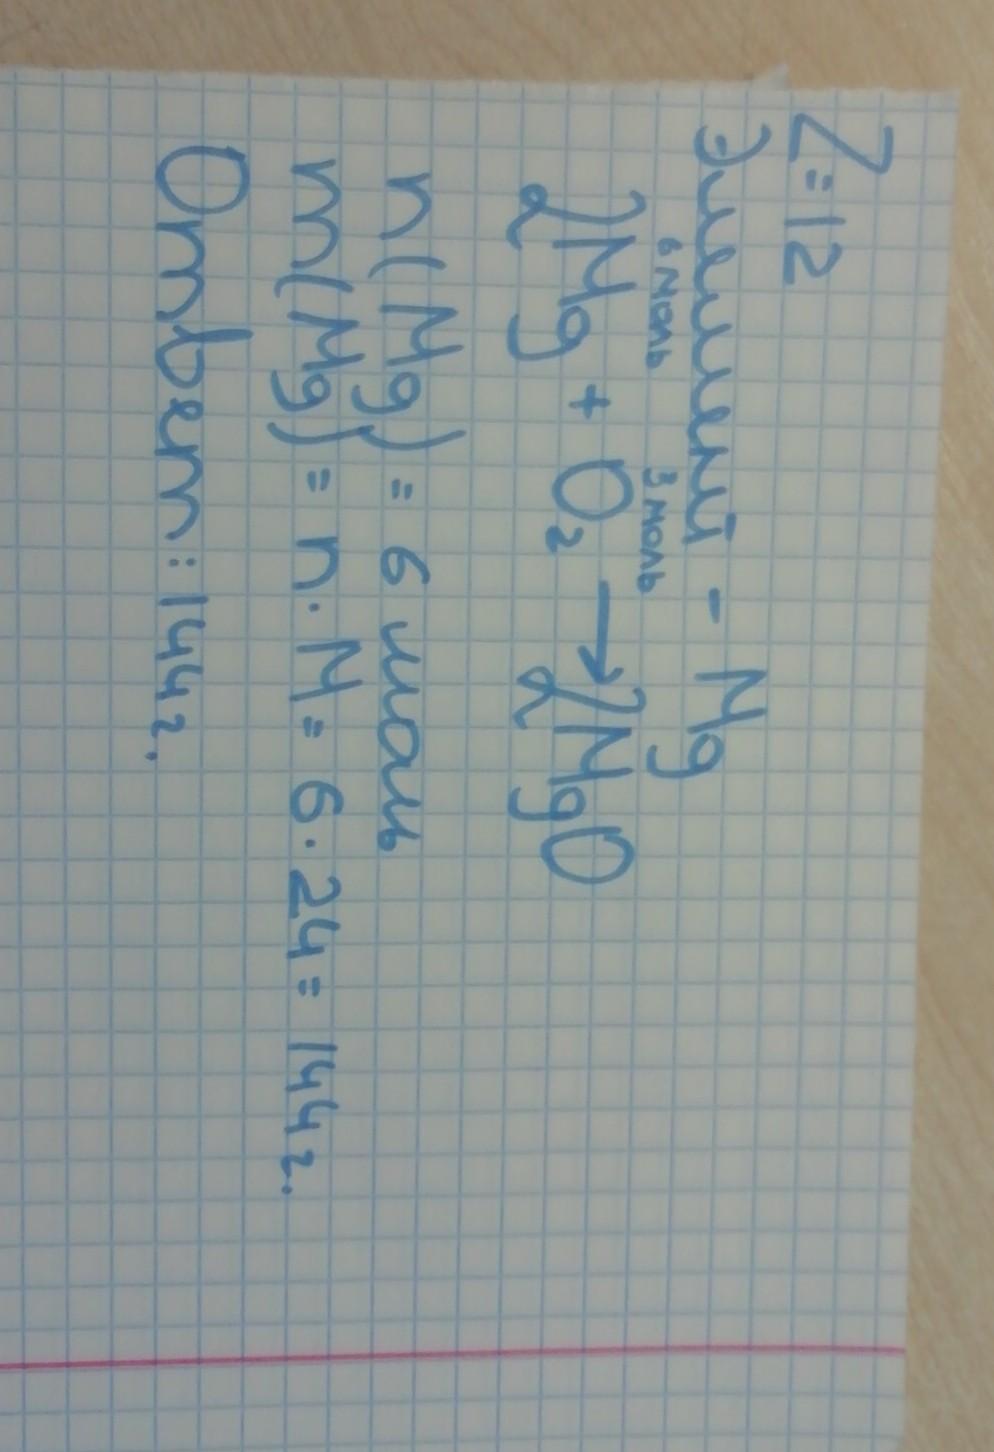 Z=12
Элемент - Mg
6 моль 3 моль
2Mg + O₂ → 2MgO
n(Mg) = 6 моль
m(Mg) = n · M = 6 · 24 = 144 г.
Ответ: 144 г.